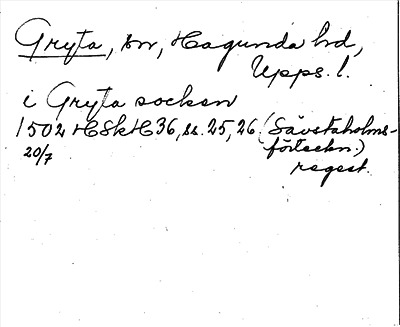 Gryta, sn, Hagunda hd,
Upps. l.
i Gryta socken
1502 HSkH 36, ss. 25, 26 (Sävstaholms-
20/7 förteckn.)
regest.